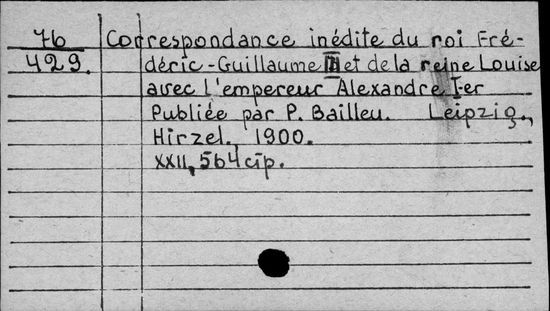 76 Correspondance inédite du roi Fré-
429. déric-Guillaume III et de la reine Louise
avec l'empereur Alexandre I-er
Publiée par P. Bailleu. Leipzig.,
Hirzel., 1900.
XXII, 564 стр.